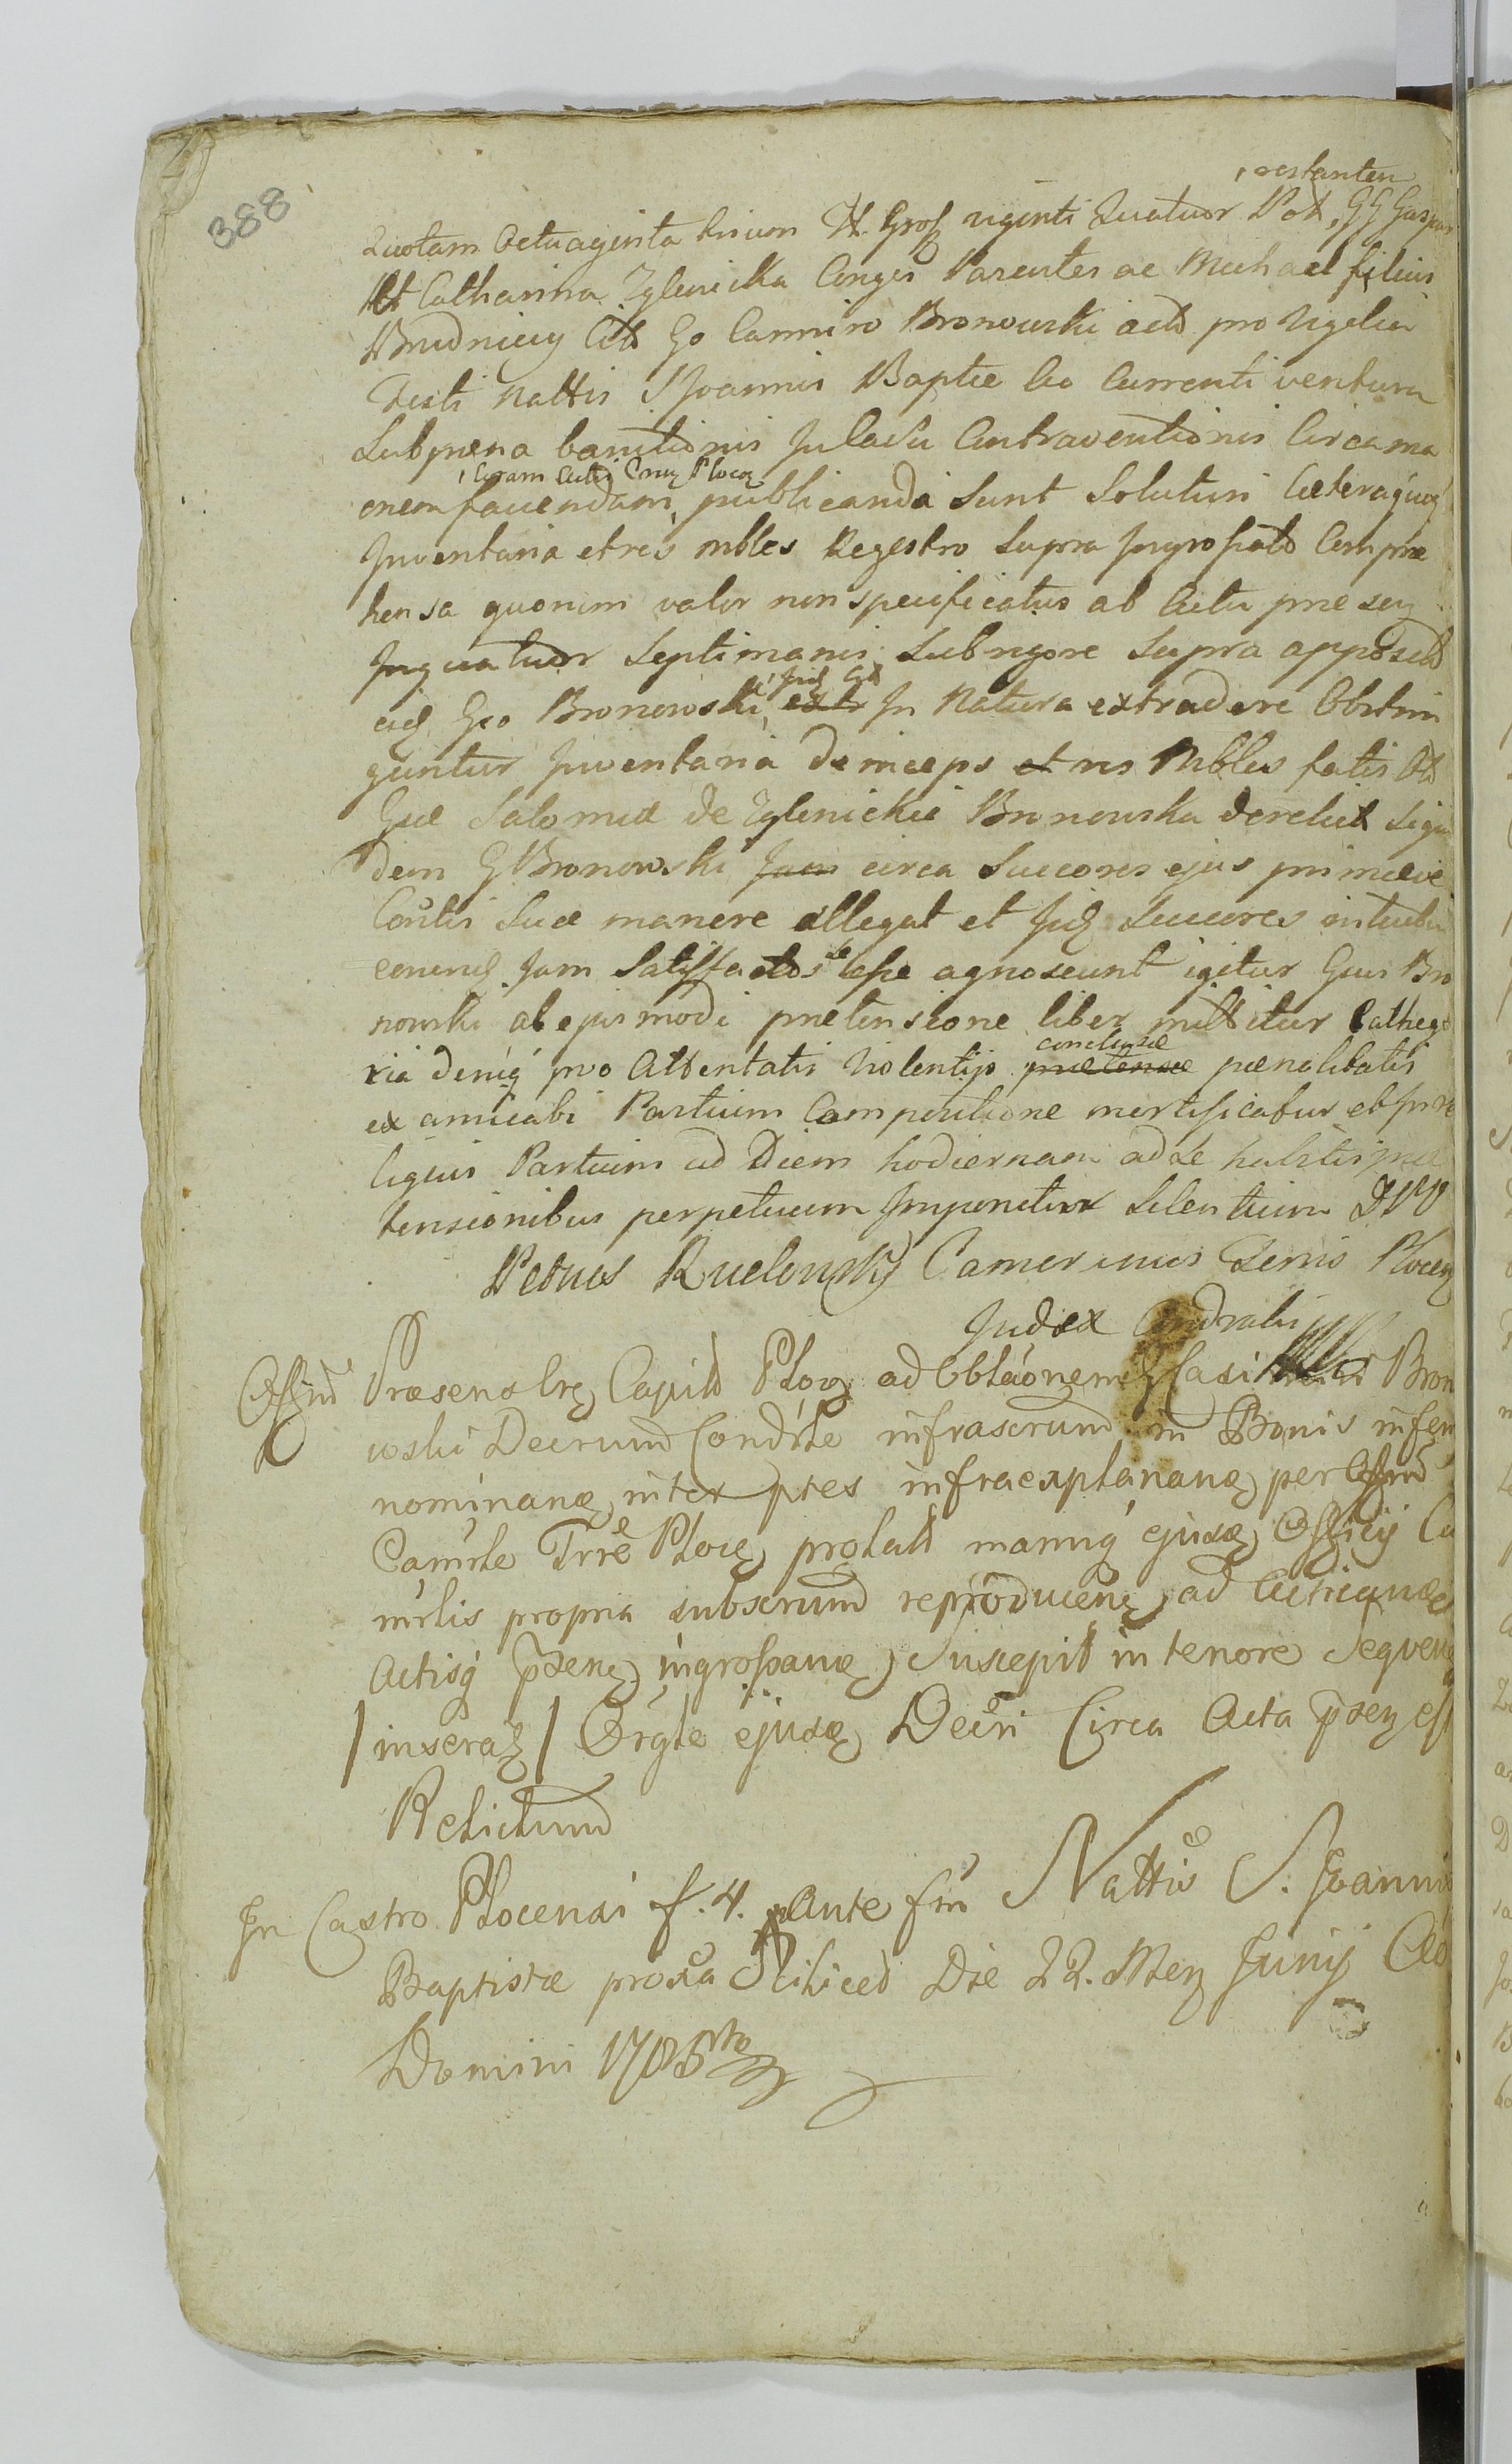 388
restanten
Quotam Octuaginta trium Fl. Gross viginti Quatuor Pol, GG Gaspar
Et Catharina Zglenicka Conges Parentes ac Michael filius
Brudniccy Citt Go Casimiro Bronowski actt pro Vigilia
Festi Nattis S Joannis Baptae Ao Currenti ventura
Sub paena banitionis In Casu Contraventionis Circa ma
Coram Actis Cnum Plocen
onem faciendam, publicanda Sunt Soluturi Caeteraque
Inventaria et res mbles Regestro Supra Ingrossatt Compre
hensa quorum valor non specificatus ab Actu praesen
In quatuor Septimanis Sub rigore Supra apposito
eid Go Bronowski, extr In Natura extradere Obstrin
guntur Inventaria deinceps et res Mbles fatis Ott
Gsae Salomea de Zglenickie Bronowska derelict Siqui
dem G Bronowski Jam circa Succores ejus primaevae
Contis Suae manere allegat et Iid Succores intuitu
eorund Jam Satisfactos se esse agnoscunt igitur Gsus Bro
nowski ab ejusmodi praetensione liber mittitur Cathego
conclusae
ria deniq pro Attentatis Violentijs praetensae paenalitatis
ex amicabi Partium Compositione mortificatur et in re
liquis Partium ad Diem hodiernam ad se habitis prae
tensionibus perpetuum Imponitur Silentium
Petrus Camerarius Terrae Plocen
Judex Condralis
Offium Praesens Cre Capitt Ploc ad Oblaonem G Casimiri Brono
wski Decrum Condrle infrascrum in Bonis infer
nominan inter ptes infraexplanan per Offm
Camrle Trre Ploc prolatt manuq ejusd Officij Ca
mrlis propria subscrum reproducen ad Acticand
Actisq psen ingrossan Suscepit in tenore Sequen
/ inserat / Orgle ejusd Decri Circa Acta psen est
Relictum
In Castro Plocensi f. 4. Ante fm Nattis S. Joannis
Baptistae proxa Scilicet Die 22. Men Junij Ao
Domini